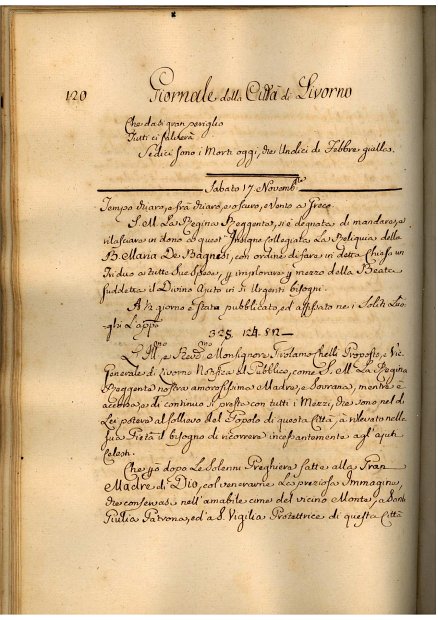 120 Giornale della Città di Livorno
Che da sì gran periglio
Tutti ci salverà
Sedici sono i Morti oggi, che Undici di Febbre gialla.
Sabato 17. Novemb.re
Tempo chiaro, e frà chiaro, e oscuro, e Vento a Greco.
S. M. La Regina Reggente, si è degnata di mandare, e
rilasciare in dono a quest' Insigne Collegiata La Reliquia della
B. Maria De Bagnesi, con ordine di fare in detta Chiesa un
Triduo a tutte Sue Spese, p implorare p mezzo della Beata
suddetta il Divino Ajuto in sì Urgenti bisogni.
A dì giorno è stato pubblicato, ed affissato nei Soliti Luo-
ghi L'app.o
325 124
L' Ill.mo e Rev.mo Monsignore Girolamo Proposto, e Vic.
Generale di Livorno Notifica al Pubblico, come S. M. La Regina
Reggente nostra amorosissima Madre, e Sovrana, mentre è
accorsa, e di continuo si presta con tutti i Mezzi, che sono nel di
Lei potere al sollievo del Popolo di questa Città, à rilevato nella
sua Pietà il bisogno di ricorrere incessantemente agl' ajuti
Celesti.
Che dopo Le Solenni Preghiere fatte alla Gran
Madre di Dio, col venerarne La preziosa Immagine,
che conservasi nell' amabile cime del vicino Monte, a Santa
Giulia Patrona, ed' a S. Vigilia Protettrice di questa Città